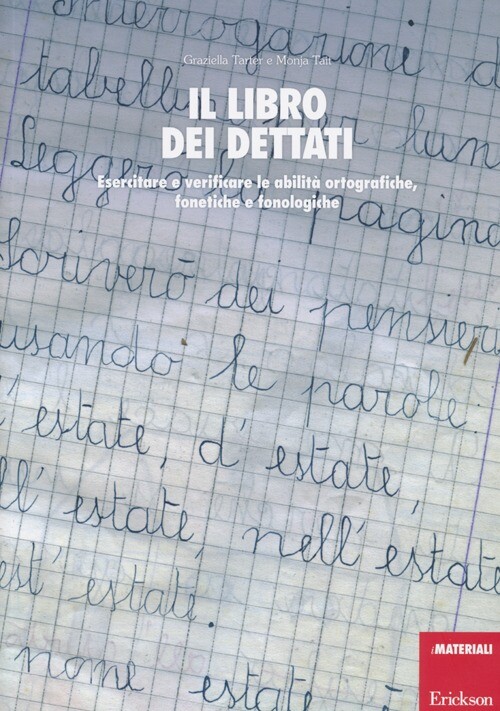 interrogazioni
Graziella Tarter e Monja Tait
IL LIBRO
DEI DETTATI
Esercitare e verificare le abilità ortografiche,
fonetiche e fonologiche
per lun
Leggerò pagina
Scriverò dei pensieri
usando le parole:
l'estate, d'estate,
ll'estate, nell'estate
est'estate.
nome estate è
iMATERIALI
Erickson